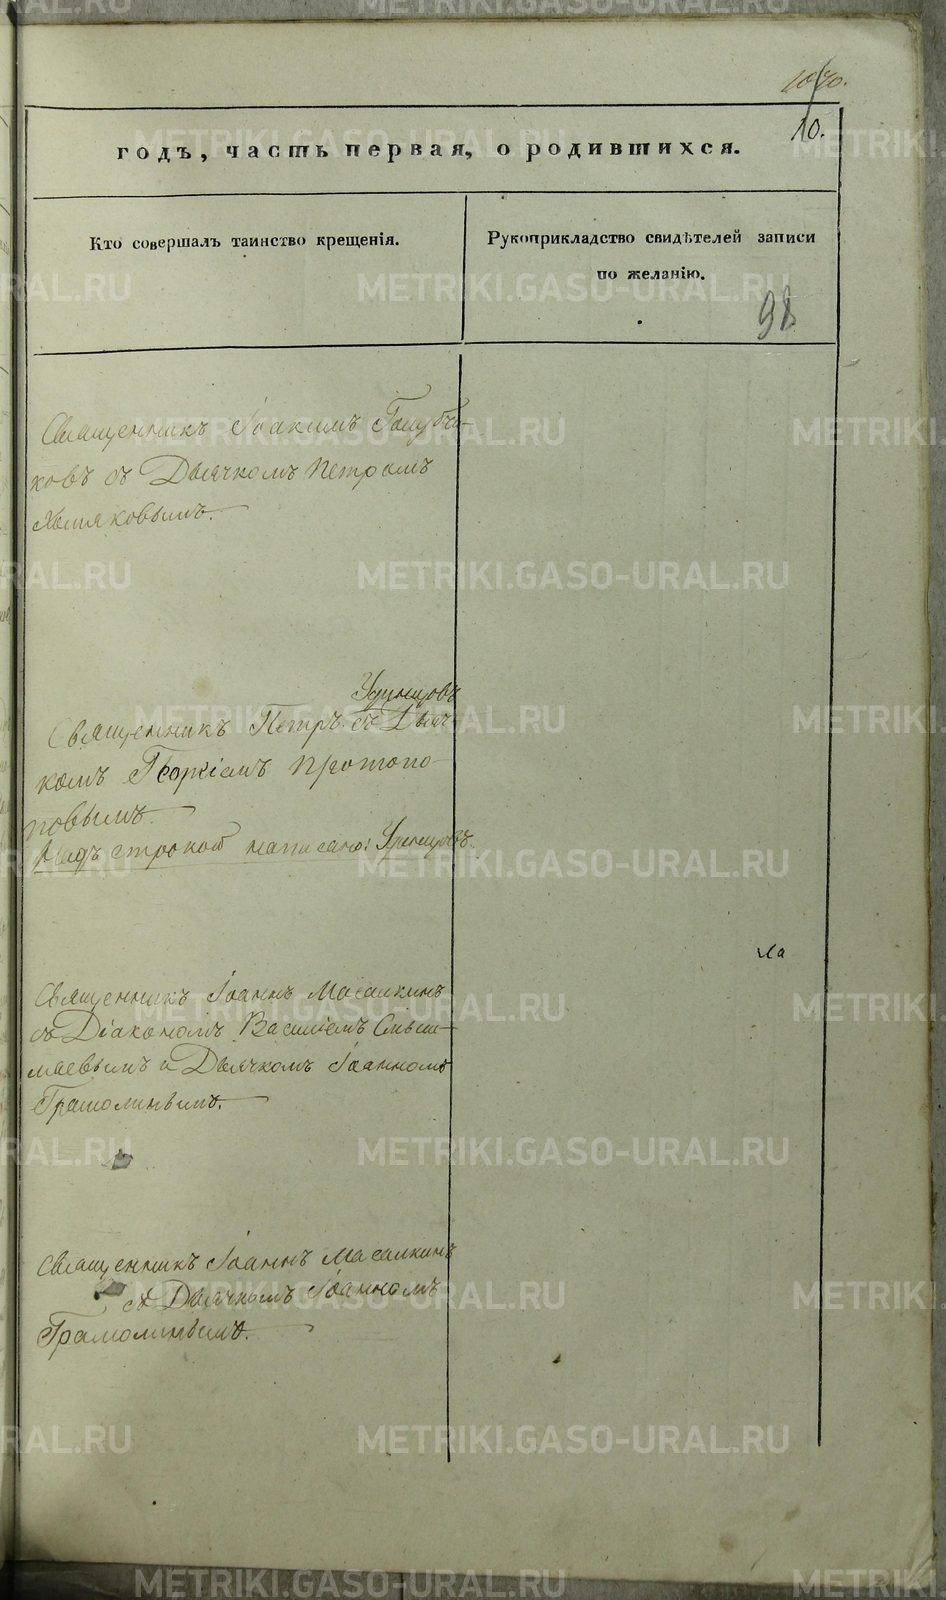 10.
годъ, часть первая, о родившихся.
Кто совершалъ таинство крещенія.
Рукоприкладство свидѣтелей записи
по желанію.
98
Священникъ Іоакимъ Голубчи-
ковъ съ Дьячкомъ Петромъ
Хмляковымъ.
Удинцовъ
Священникъ Петръ съ Дьяч
комъ Георгіемъ Протопо-
повымъ.
Надъ строкой написано: Удинцовъ.
Священникъ Іоаннъ Масалкинъ
съ Діакономъ Василіемъ
и Дьячкомъ Іоанномъ
Грамолинымъ.
Священникъ Іоаннъ Масалкинъ
съ Дьячкомъ Іоанномъ
Грамолинымъ.
METRIKI.GASO-URAL.RU